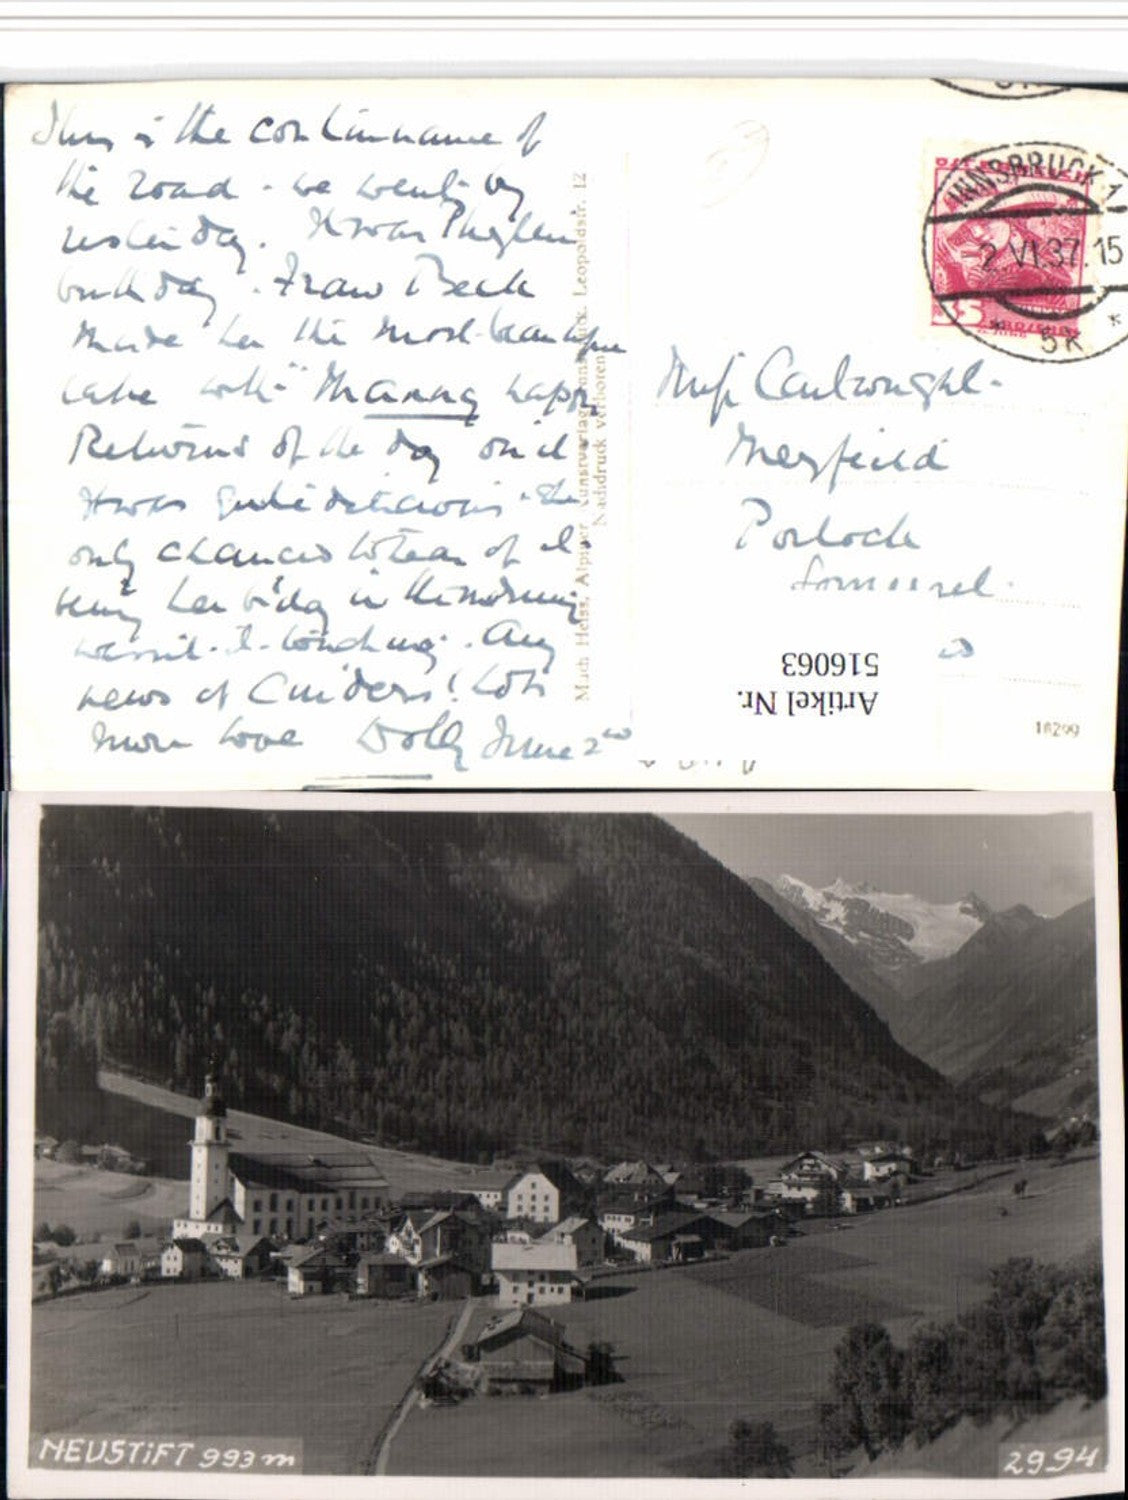 This is the continuance of
the road - we went by
yesterday. It was
birthday. Frau Beck
made her the most beautiful
cake with "Many happy
Returns of the day on it
It was quite delicious - the
only chances to hear of it
being her b'day in the morning
was
news of Cuiders! Lots
more love Dolly June 2nd
Much Heiss, Alpiner Kunstverlag, Innsbruck, Leopoldstr. 12
Nachdruck verboten
INNSBRUCK 1
2.VI.37.15
* 5k *
35
Miss Cartwright.
Meyfield
Porlock
Somerset.
Artikel Nr.
516063
18299
NEUSTiFT 993 m
2994